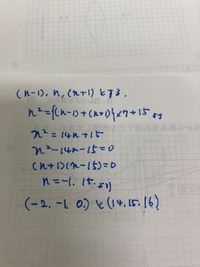 (n-1), n, (n+1) とする.
n²={(n-1)+(n+1)}×7+15 より
n²=14n+15
n²-14n-15=0
(n+1)(n-15)=0
n=-1, 15. より
(-2. -1. 0.) と (14. 15. 16)